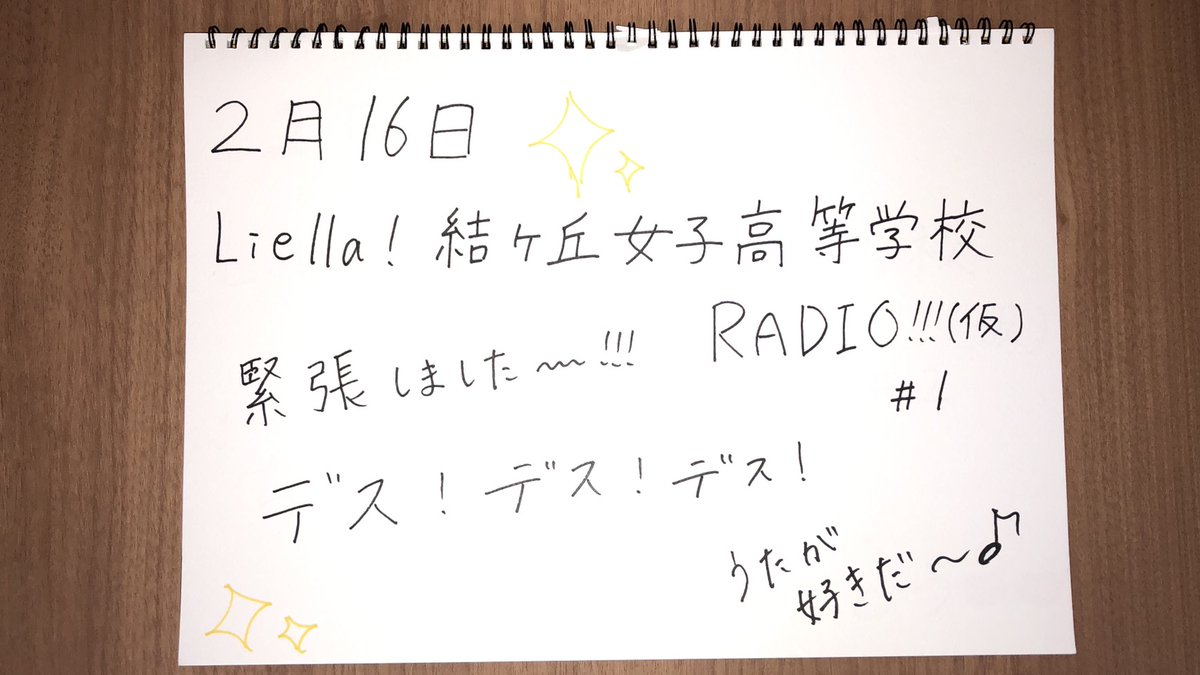 2月16日
Liella! 結ヶ丘女子高等学校
RADIO!!!(仮)
#1
緊張しました〜!!!
デス!デス!デス!
うたが
好きだ〜♪